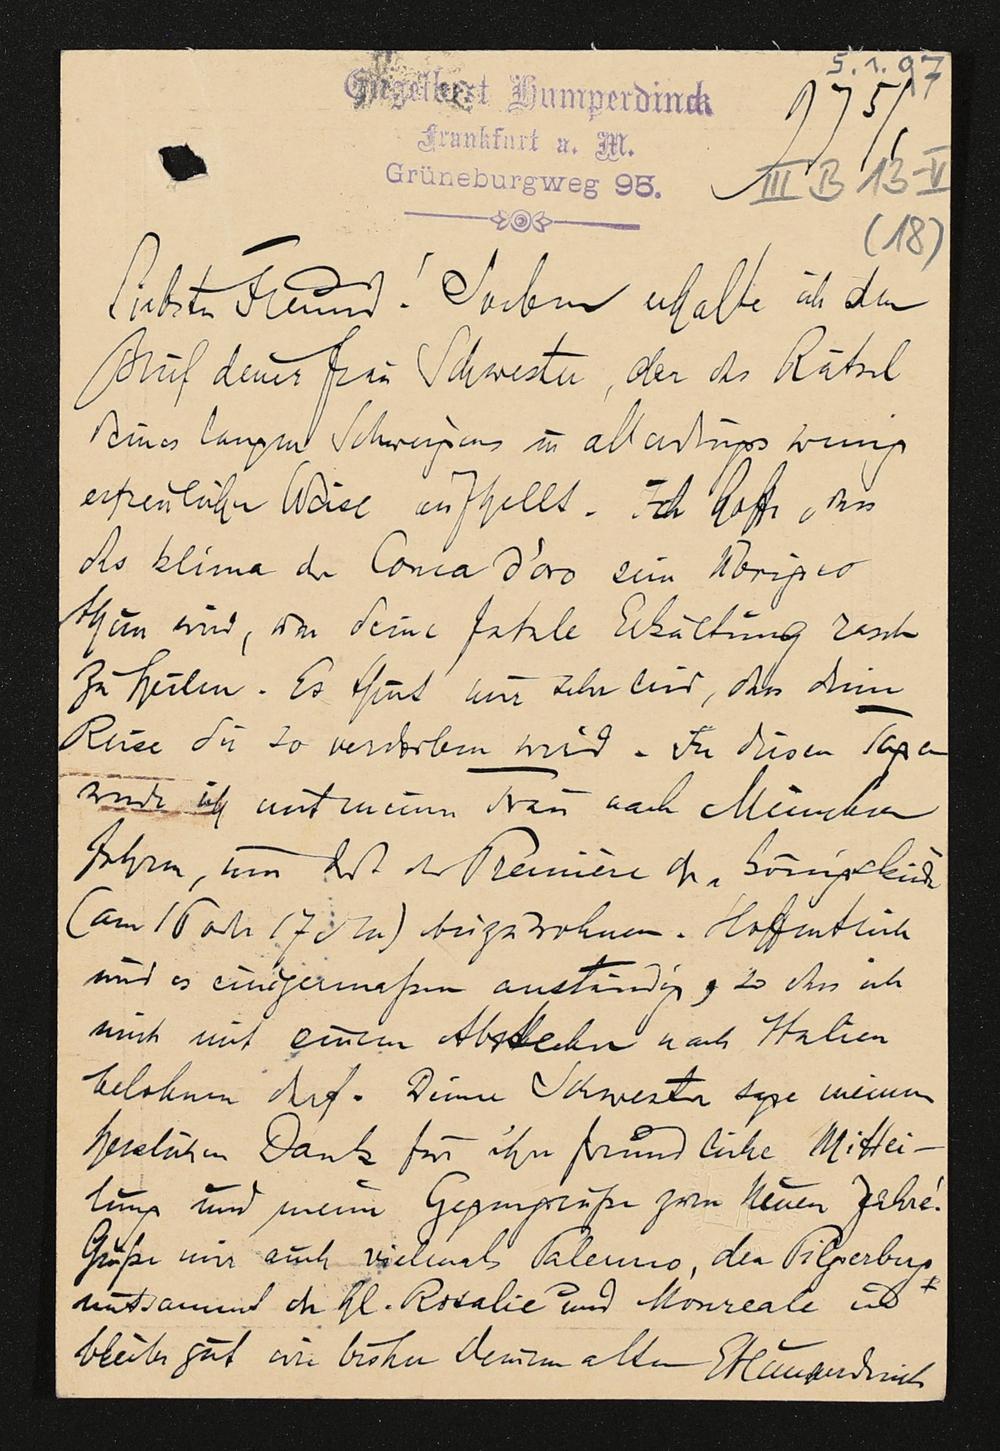 5.1.97
Engelbert Humperdinck
Frankfurt a. M.
Grüneburgweg 95.
975/
III B 13-V
(18)
Liebster Freund! Soeben erhalte ich den
Brief deiner Frau Schwester, der das Rätsel
deines langen Schweigens in allerdings wenig
erfreulicher Weise aufhellt. Ich hoffe, dass
das Klima der Conca d'oro sein Übriges
thun wird, um deine fatale Erkältung rasch
zu heilen. Es thut mir sehr leid, dass deine
Reise dir so verdorben wird. In diesen Tagen
werde ich mit meiner Frau nach München
fahren, um dort der Première der „Königskinder
(am 16 oder 17 d M) beizuwohnen. Hoffentlich
wird es einigermaßen anständig, so dass ich
mich mit einem Abstecher nach Italien
belohnen darf. Deiner Schwester sage meinen
herzlichen Dank für ihre freundliche Mittei-
lung und meine Gegengrüße zum Neuen Jahre!
Grüße mir auch vielmals Palermo, den Pilgerberg
mitsammt der hl. Rosalie und Monreale und
bleibe gut wie bisher deinem alten EHumperdinck